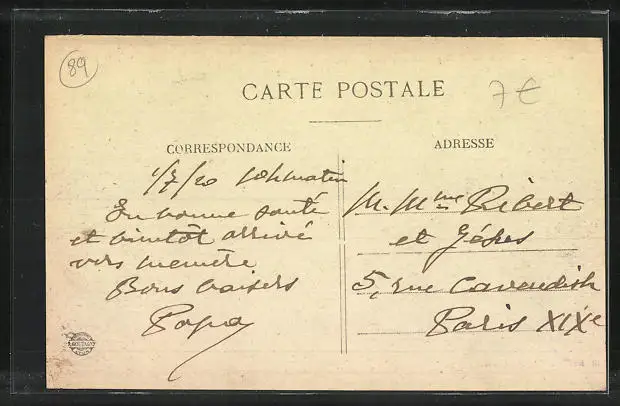 89
CARTE POSTALE
7€
CORRESPONDANCE
ADRESSE
1/7/20 10h matin
En bonne santé
et bientôt arrivé
vers
Bons baisers
Papa
M. Mme Ribert
et
5, rue Cavendish
Paris XIXe